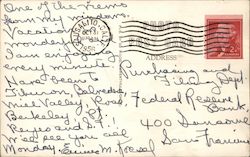 One of the views
from my windows.
Vacation
wonderful
I am enjoying
every minute
Have been to
Tiburon, Belvedere,
Mill Valley, Ross,
Berkeley, Pt.
Reyes and S.F.
Will see you all
Monday.
SAUSALITO
OCT 31
1950
ADDRESS
2¢
Purchasing and
Supply Dept
Federal Reserve Bank
400 Sansome
San Francisco